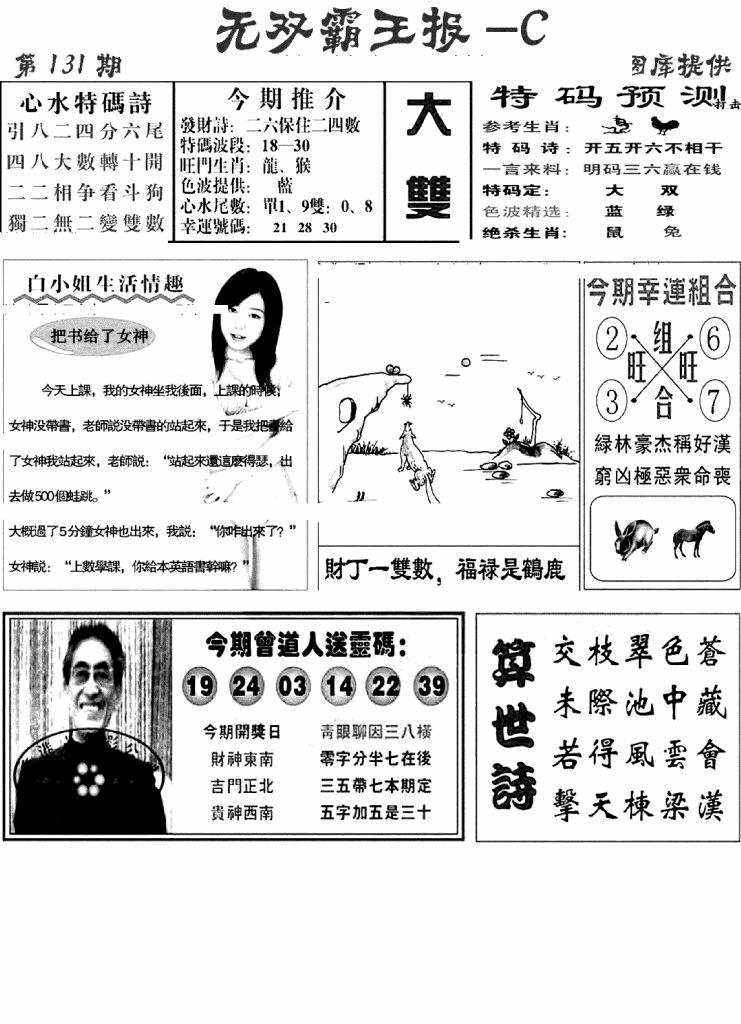 无双霸王报 —C
第131期
图库提供
心水特碼詩
引八二四分六尾
四八大數轉十開
二二相争看斗狗
獨二無二變雙數
今期推介
發財詩：二六保住二四數
特碼波段：18—30
旺門生肖：龍、猴
色波提供：藍
心水尾數：單1、9雙：0、8
幸運號碼：21 28 30
大
雙
特码预测
参考生肖：
特码诗：开五开六不相干
一言来料：明码三六赢在钱
特码定：大 双
色波精选：蓝 绿
绝杀生肖：鼠 兔
白小姐生活情趣
把书给了女神
今天上課，我的女神坐我後面，上課的時候，
女神没帶書，老師説没帶書的站起來，于是我把書給
了女神我站起來，老師説：“站起來還這麽得瑟，出
去做500個蛙跳。”
大概過了5分鐘女神也出來，我説：“你咋出來了？”
女神説：“上數學課，你給本英語書幹嘛？”
財丁一雙數，福禄是鶴鹿
今期幸運組合
2 组 6
旺 旺
3 合 7
緑林豪杰稱好漢
窮凶極惡衆命喪
今期曾道人送靈碼：
19 24 03 14 22 39
今期開獎日 青眼聊因三八横
財神東南 零字分半七在後
吉門正北 三五帶七本期定
貴神西南 五字加五是三十
算世詩
交枝翠色蒼
未際池中藏
若得風雲會
擊天棟梁漢